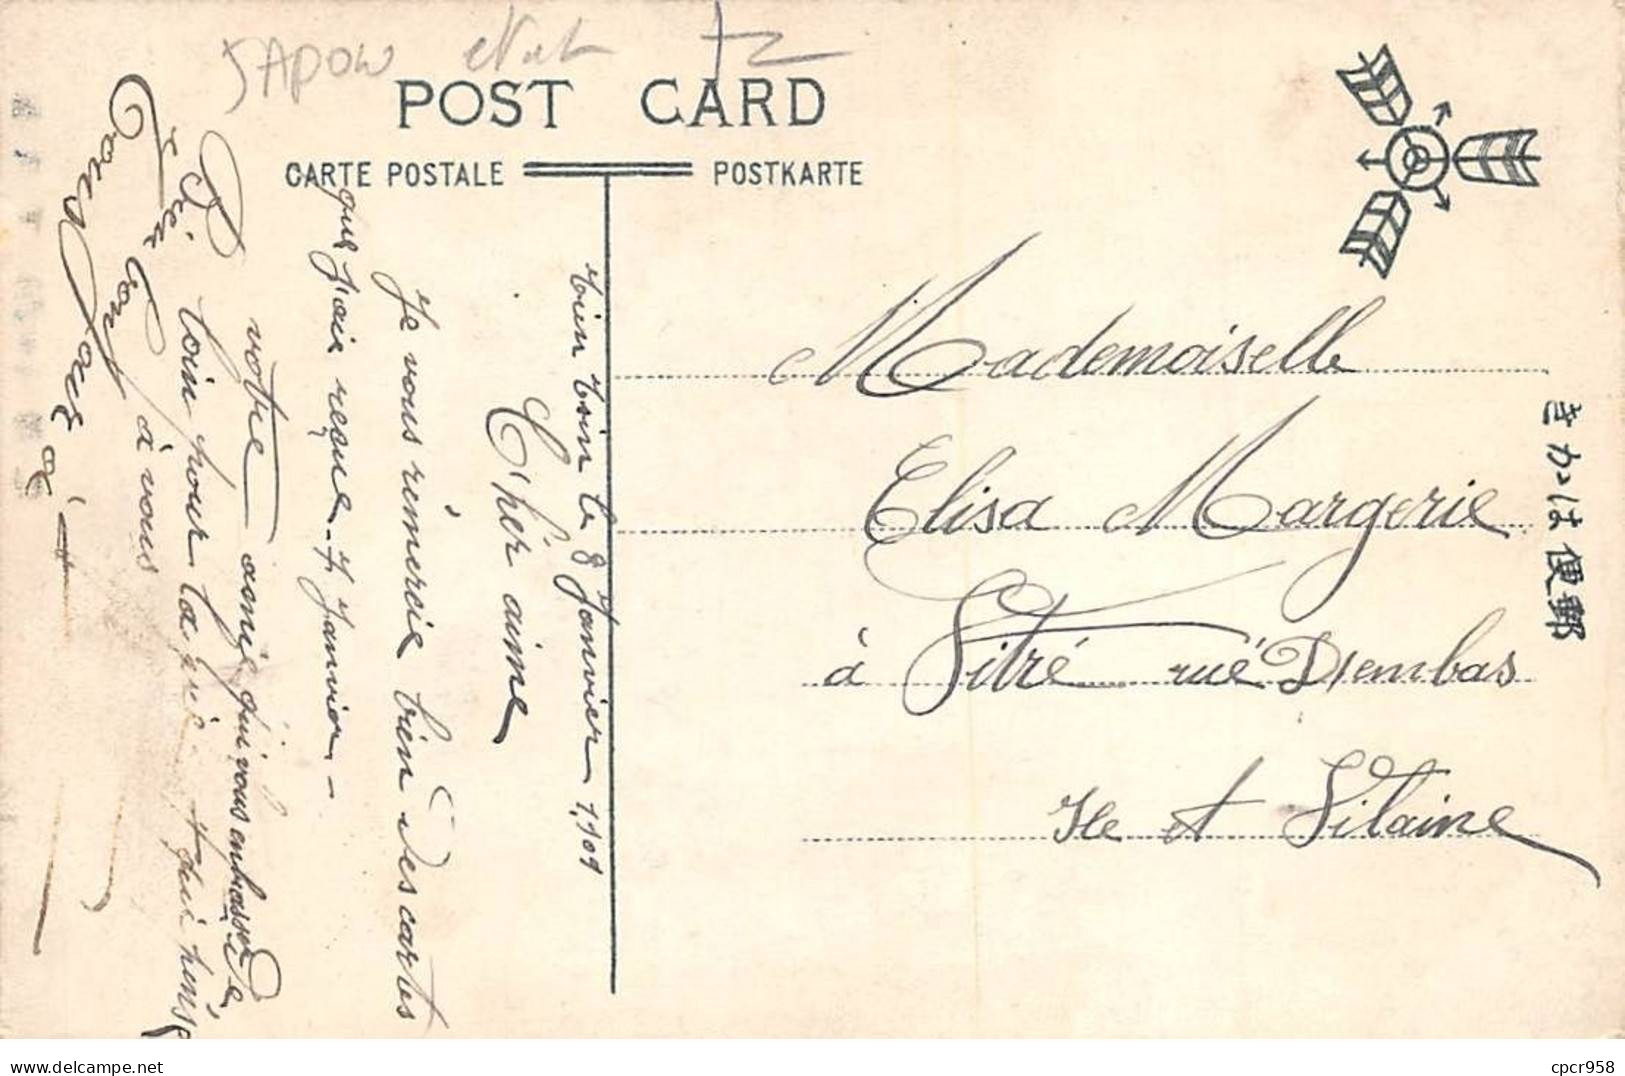 JAPON
POST CARD
CARTE POSTALE POSTKARTE
Tien Tsin le 8 Janvier 1909
Chér aimé
Je vous rémercie bien des cartes
que j'aie reçue 7 Janvier -
votre amie qui vous embrasse De
loin pour la vie
à vous
Mademoiselle
Elisa Margerie
à Vitré rue D'embas
Ile et Vilaine
きかは便郵
delcampe.net
cpcr958